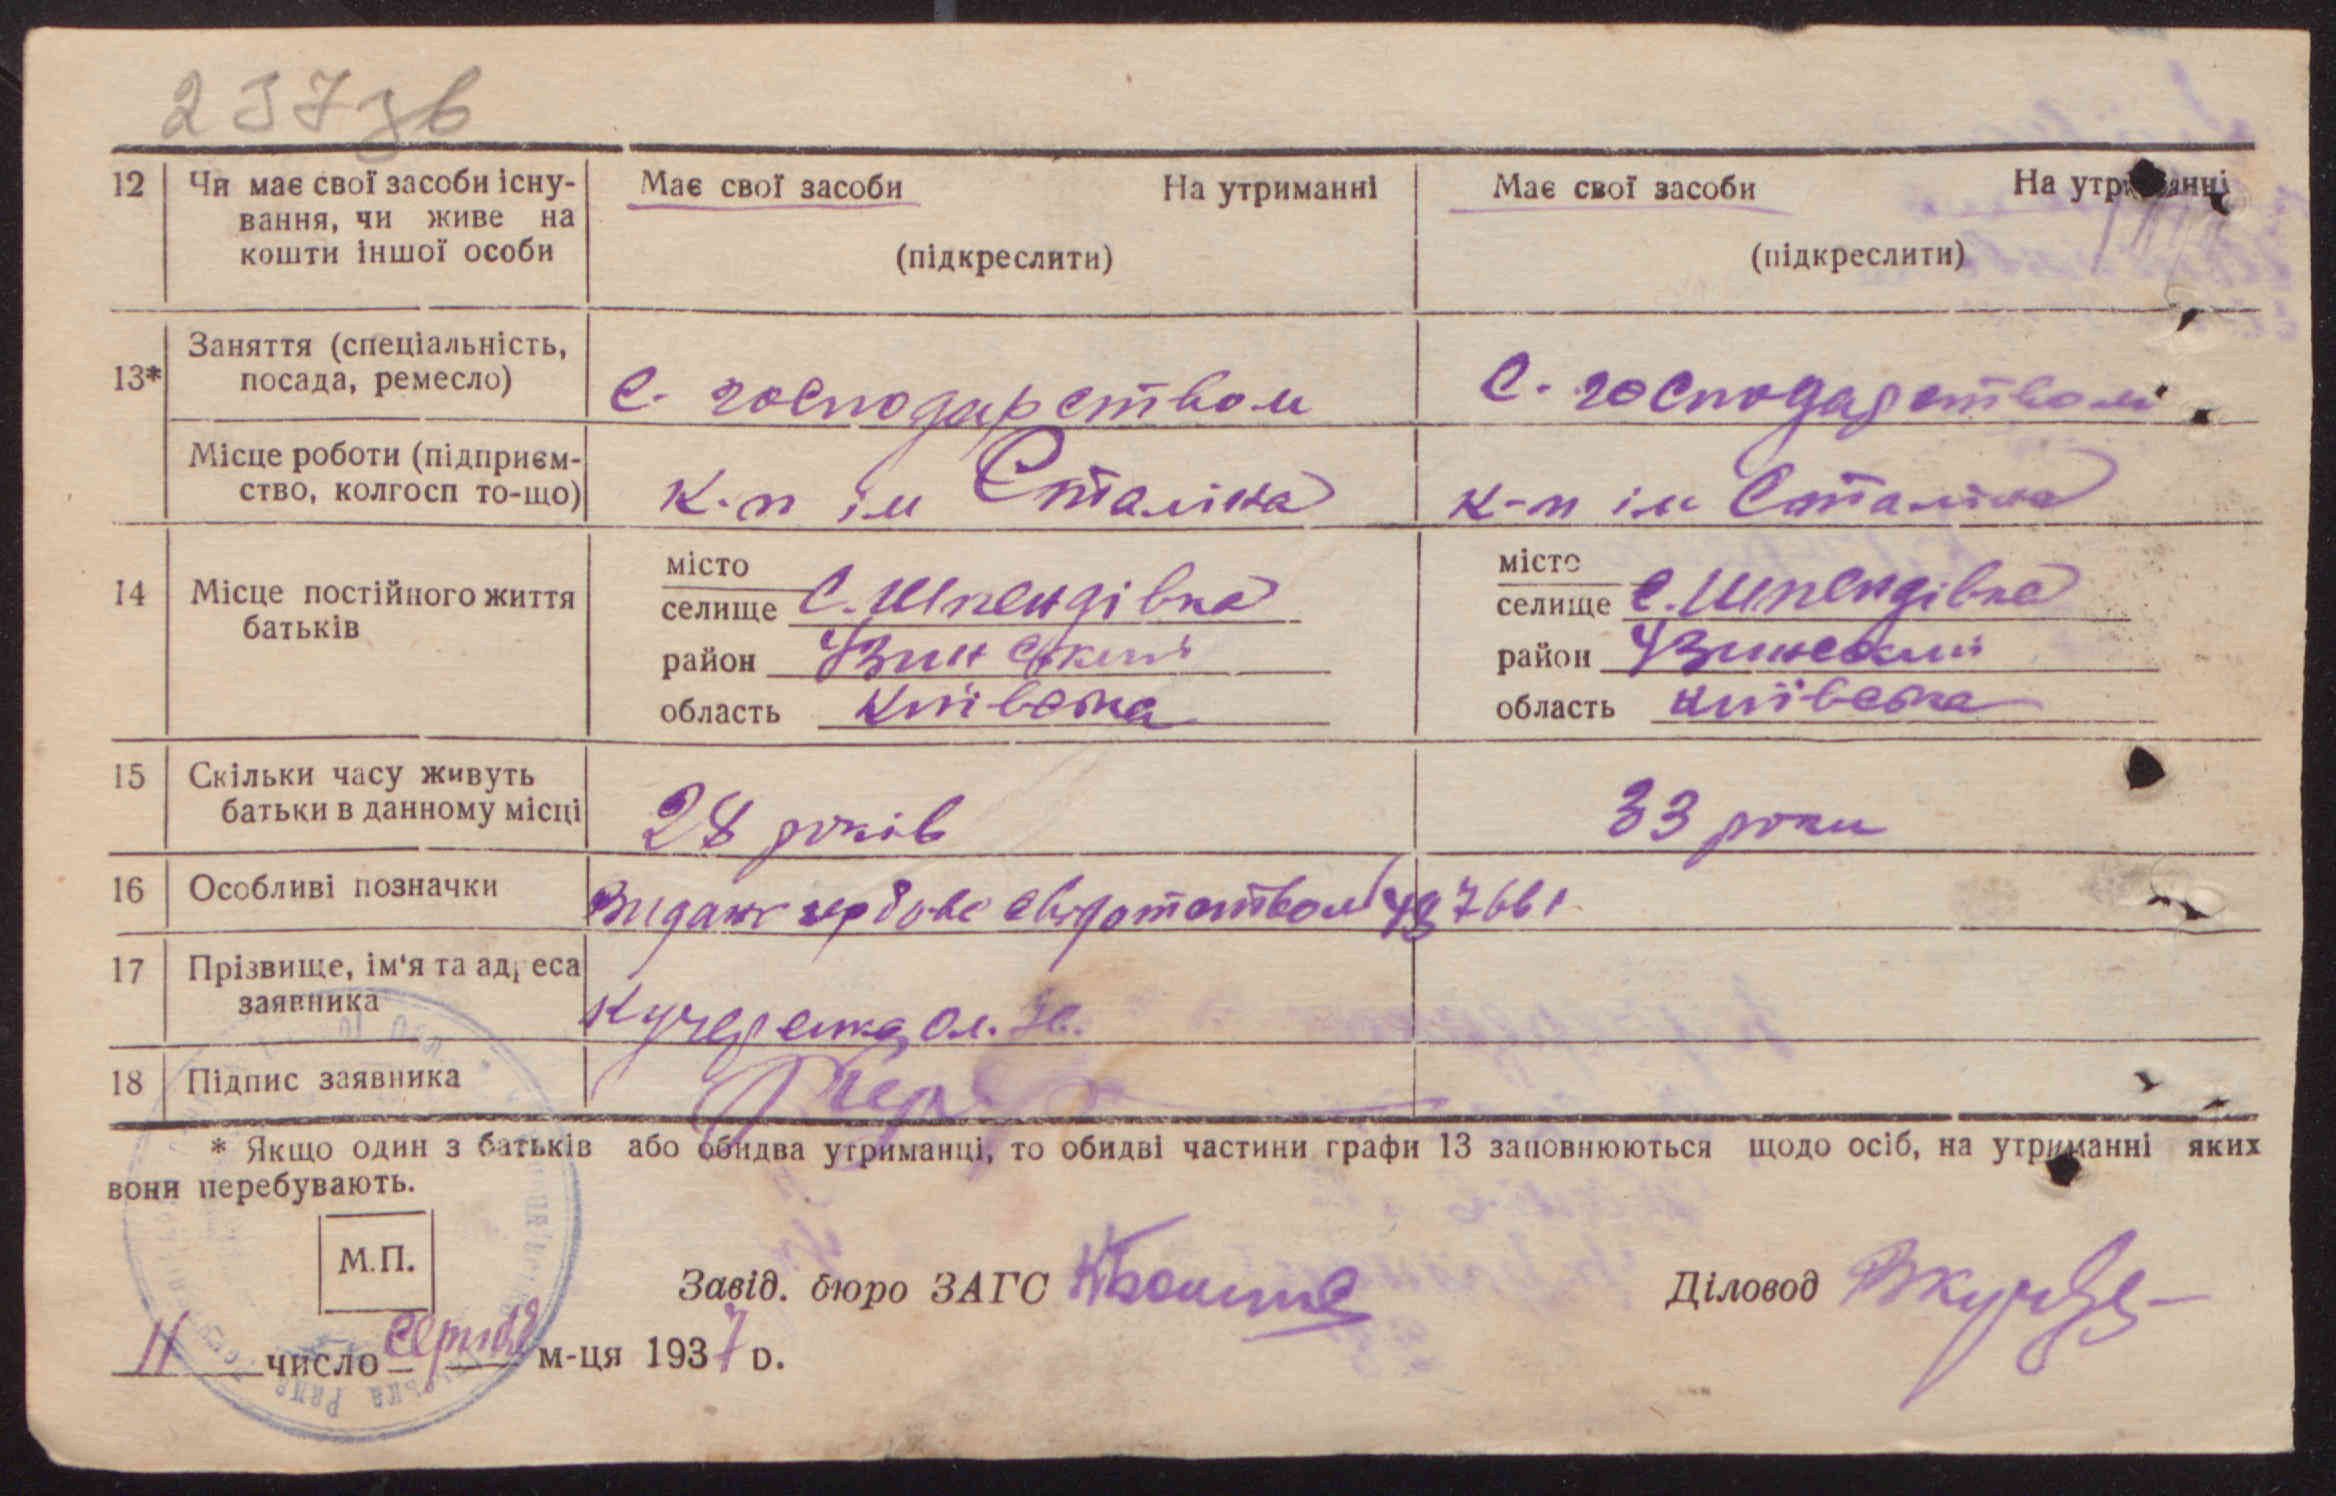 237 зв
12 Чи має свої засоби існу-
вання, чи живе на
кошти іншої особи
Має свої засоби На утриманні
(підкреслити)
Має свої засоби На утриманні
(підкреслити)
13* Заняття (спеціальність,
посада, ремесло)
С. господарством
С. господарством
Місце роботи (підприєм-
ство, колгосп то-що)
к-п ім Сталіна
к-п ім Сталіна
14 Місце постійного життя
батьків
місто
селище С. Шпендівка
район Узинський
область Київська
місто
селище С. Шпендівка
район Узинський
область Київська
15 Скільки часу живуть
батьки в данному місці
28 років
33 роки
16 Особливі позначки
Видано гербове
17 Прізвище, ім'я та адреса
заявника
Кучеренко Ол.
18 Підпис заявника
* Якщо один з батьків або обидва утриманці, то обидві частини графи 13 заповнюються щодо осіб, на утриманні яких
вони перебувають.
М.П.
Завід. бюро ЗАГС
Діловод
11 число серпня м-ця 1937 р.